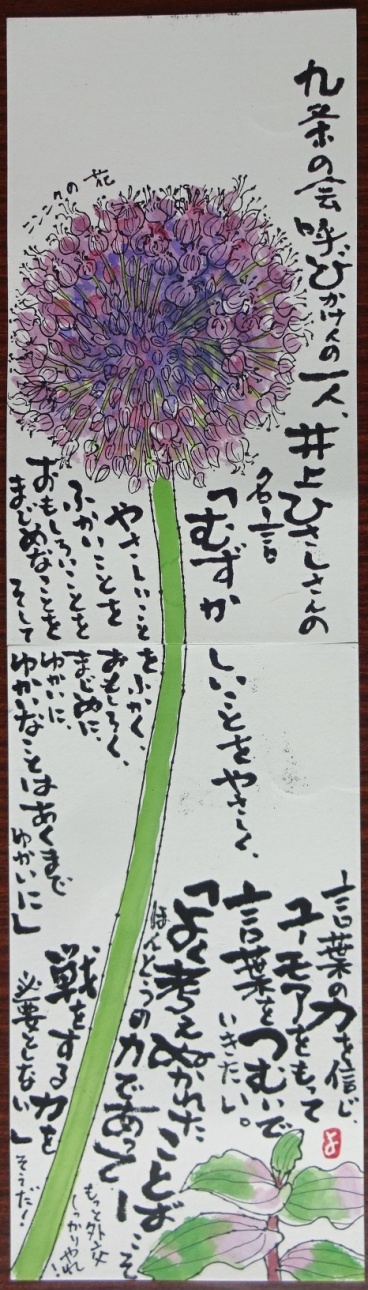 九条の会呼びかけ人の一人、井上ひさしさんの
名言
「むずかしいことをやさしく、
やさしいことをふかく、
ふかいことをおもしろく、
おもしろいことをまじめに、
まじめなことをゆかいに、
そしてゆかいなことはあくまでゆかいに」
ニンニクの花
言葉の力を信じ、
ユーモアをもって
言葉をつむいで
いきたい。
「よく考えぬかれたことばこそ
ほんとうの力であって
戦をする力を
必要としない」そうだ!
もっと外交
しっかりやれ!